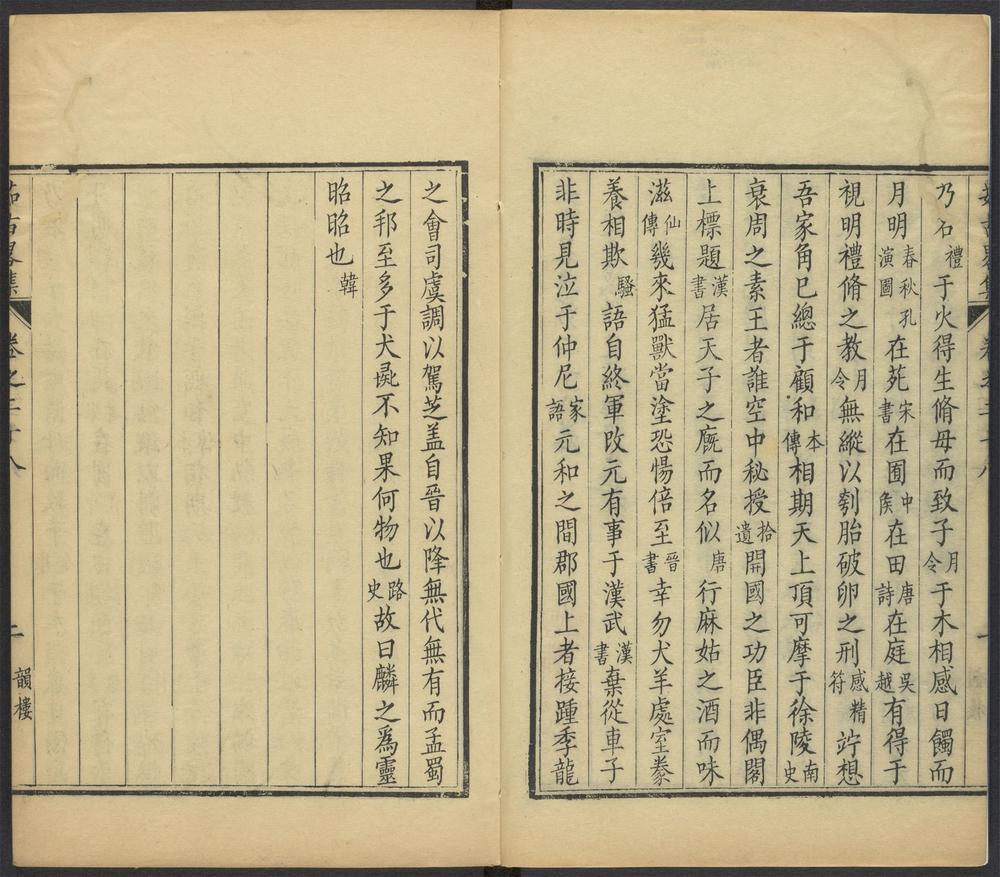 乃石禮于火得生脩母而致子月令于木相感日鐲而
月明春秋孔演圖在苑宋書在囿中矦在田唐詩在庭吳越有得于
視明禮脩之教月令無縱以刳胎破卵之刑感精符竚想
吾家角已總于顧和本傳相期天上頂可摩于徐陵南史
衰周之素王者誰空中秘授拾遺開國之功臣非偶閣
上標題漢書居天子之廐而名似唐行麻姑之酒而味
滋仙傳幾來猛獸當塗恐惕倍至晉書幸勿犬羊處室豢
養相欺騷語自終軍改元有事于漢武漢書棄從車子
非時見泣于仲尼家語元和之間郡國上者接踵季龍
之會司虞調以駕芝盖自晉以降無代無有而孟蜀
之邦至多于犬彘不知果何物也路史故曰麟之爲靈
昭昭也韓
韻樓